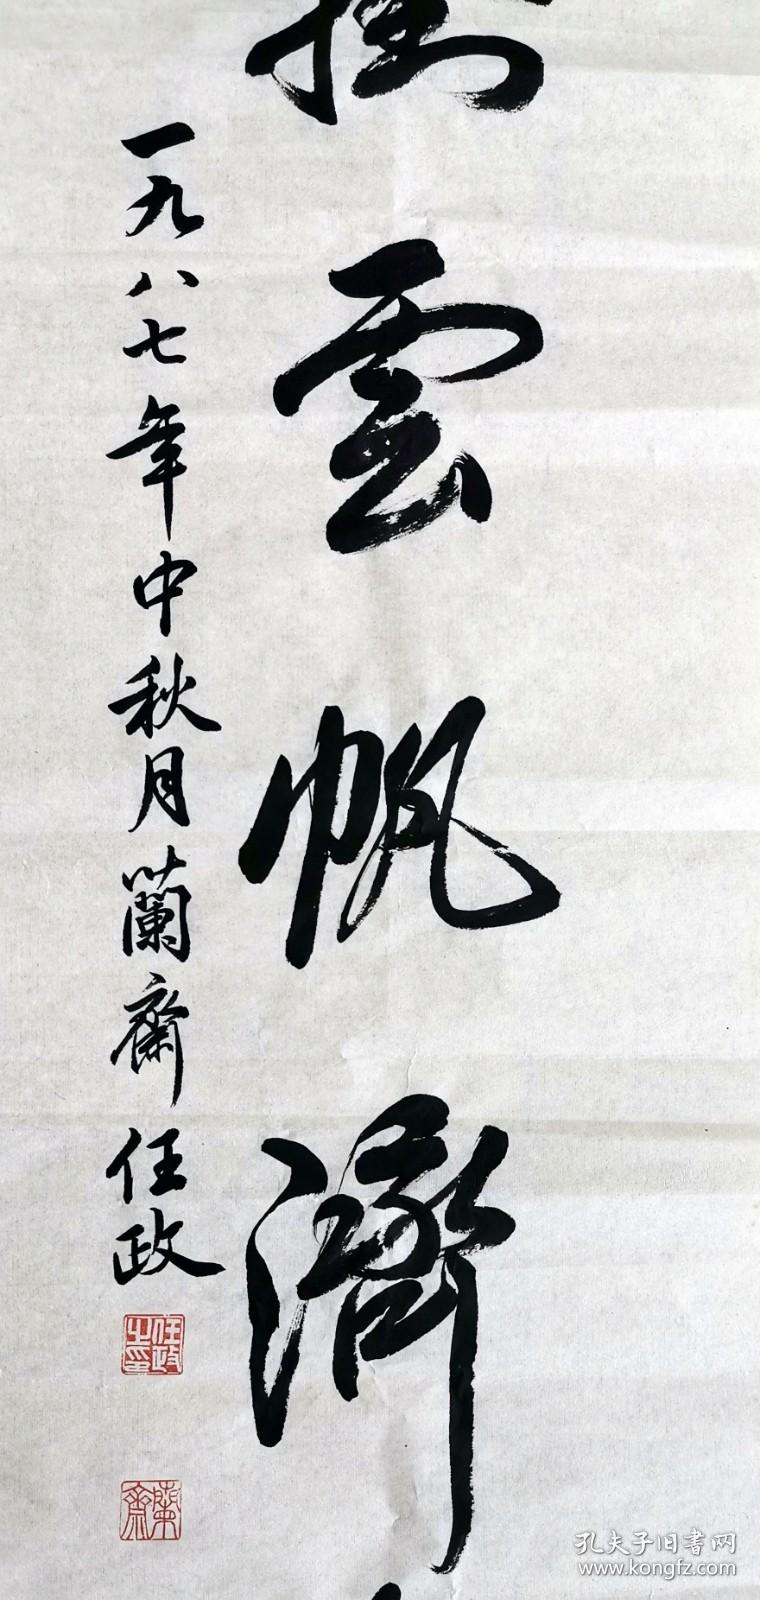 掛雲帆濟
一九八七年中秋月蘭齋任政
任政之印
蘭齋
孔夫子旧書网
www.kongfz.com